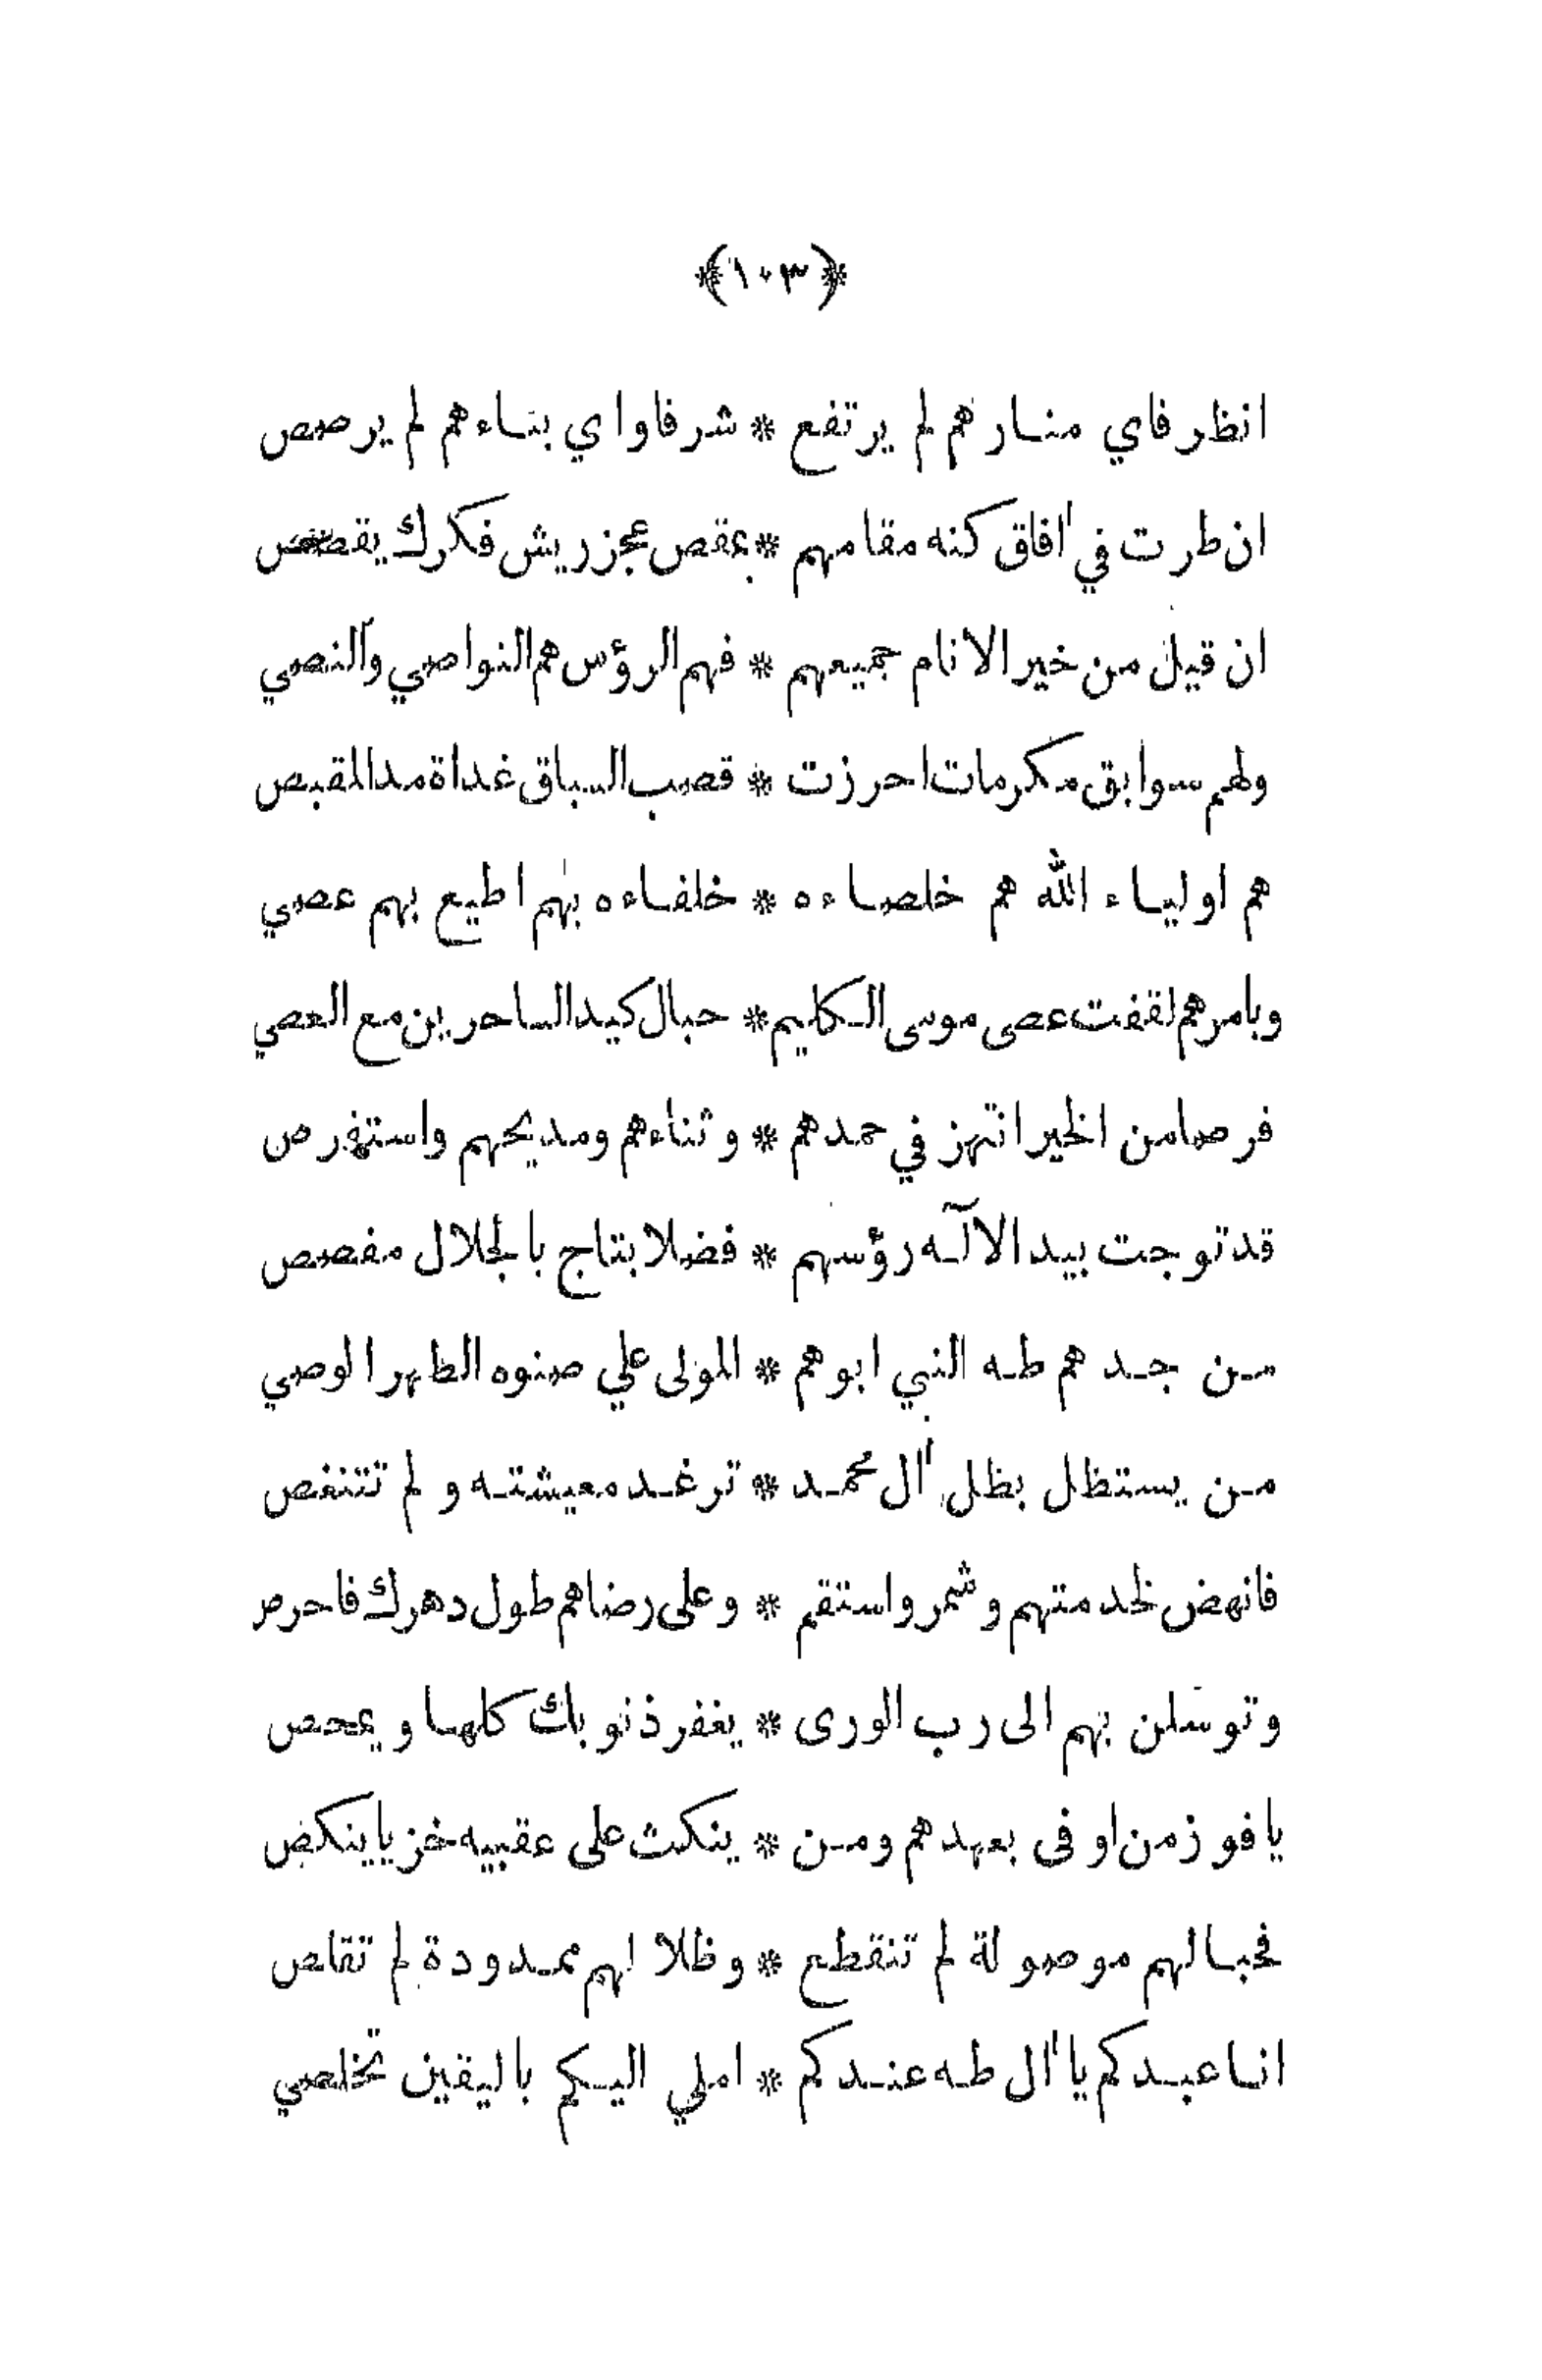 ﴿١٠٣﴾
انظر فاي منارهم لم يرتفع * شرفا واي بناءهم لم يرصص
ان طرت في اٰفاق كنه مقامهم * بمقص عجز ريش فكرك يقصص
ان قيل من خير الانام جميعهم * فهم الرؤس هم النواصي والنصي
ولهم سوابق مكرمات احرزت * قصب السباق غداة مد المقبص
هم اولياء الله هم خلصاءه * خلفاءه بهم اطيع بهم عصي
وبامرهم لقفت عصى موسى الكليم * حبال كيد الساحرين مع العصي
فرصا من الخير انتهز في حمدهم * وثناءهم ومديحهم واستفرص
قد توجت بيد الآله رؤسهم * فضلا بتاج بالجلال مفصص
من جدهم طه النبي ابوهم * المولى علي صنوه الطهر الوصي
من يستظل بظل اٰل محمد * ترغد معيشته ولم تتنغص
فانهض لخدمتهم وشمر واستقم * وعلى رضاهم طول دهرك فاحرص
وتوسلن بهم الى رب الورى * يغفر ذنوبك كلها ويمحص
يا فوز من اوفى بعهدهم ومن * ينكث على عقبيه خزيا ينكص
فحبالهم موصولة لم تنقطع * وظلالهم ممدودة لم تقلص
انا عبدكم يا اٰل طه عندكم * املي اليكم باليقين تخلصي